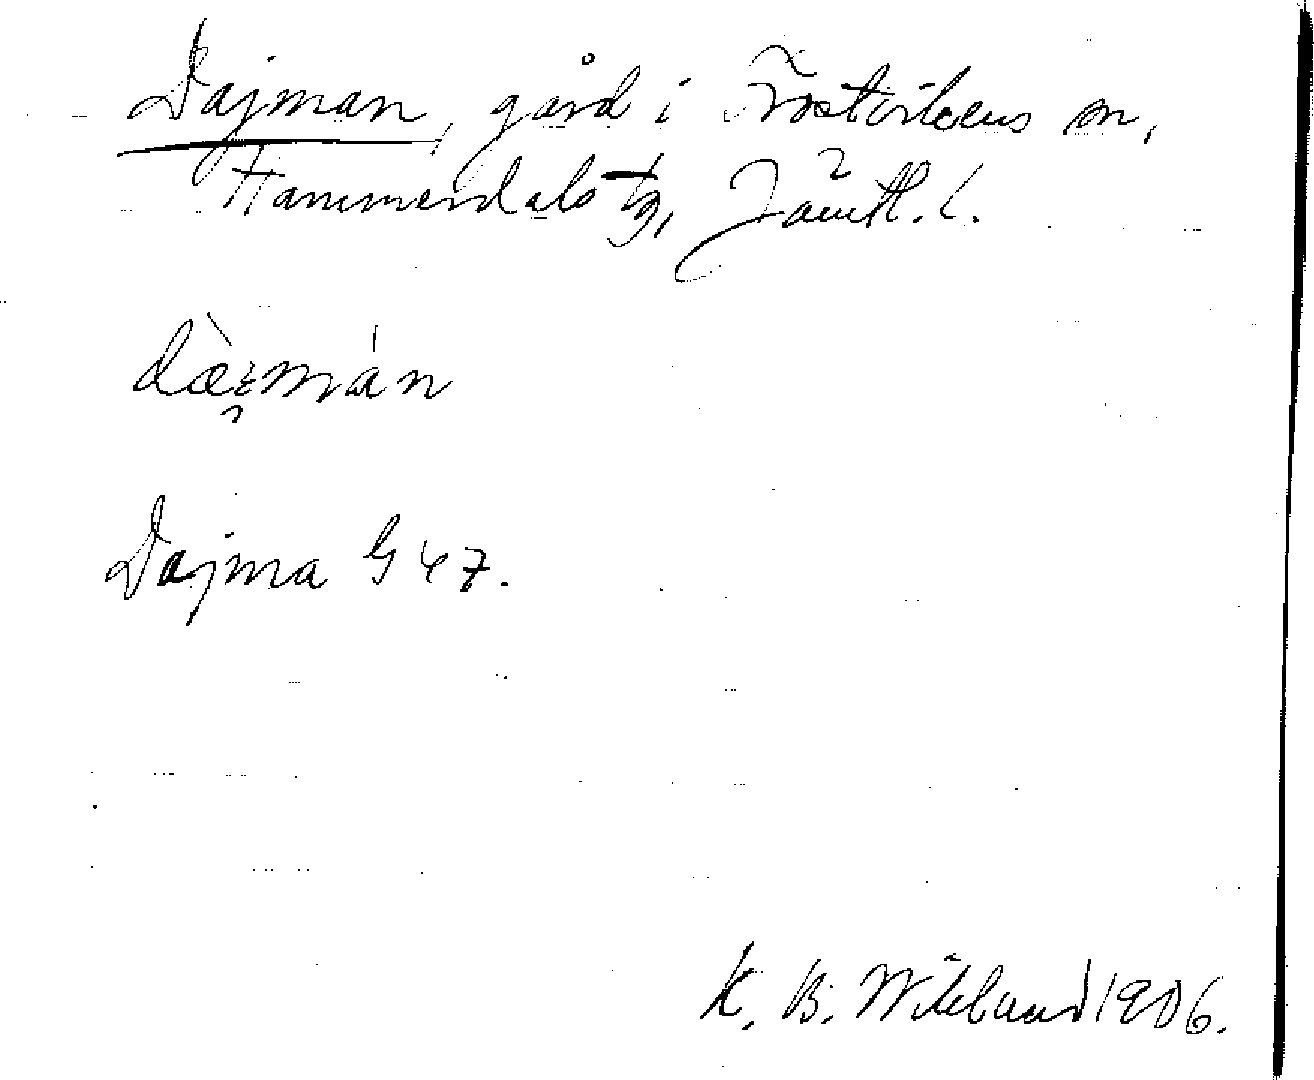 Dajman, gård i Trostvikens sn,
Hammerdals tg, Jämtl. l.
dàe̡mán
Dajma G 47.
K. B. Wiklund 1906.